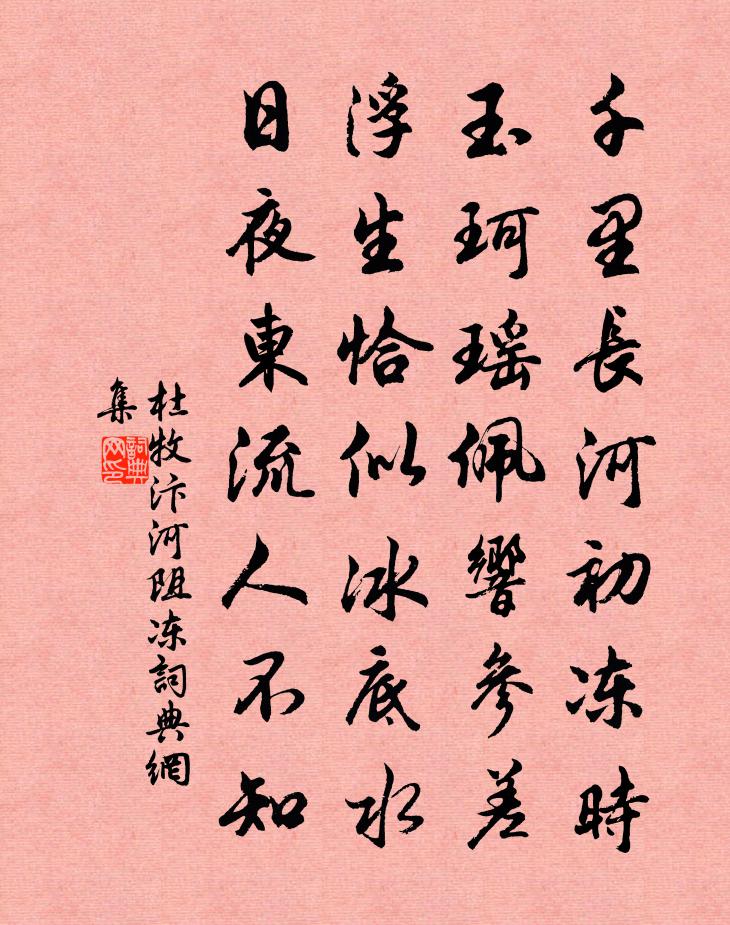 千里長河初冻時
玉珂瑶佩響參差
浮生恰似冰底水
日夜東流人不知
杜牧汴河阻冻詞典網
集
詞典網印